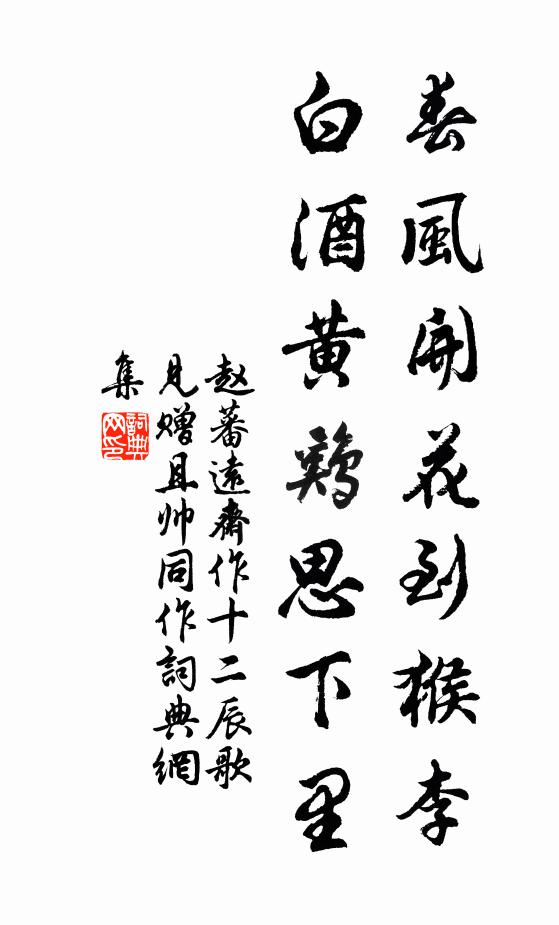 春風開花到猴李
白酒黄鷄思下里
赵蕃遠齋作十二辰歌
見赠且帅同作詞典網
集
詞典網印